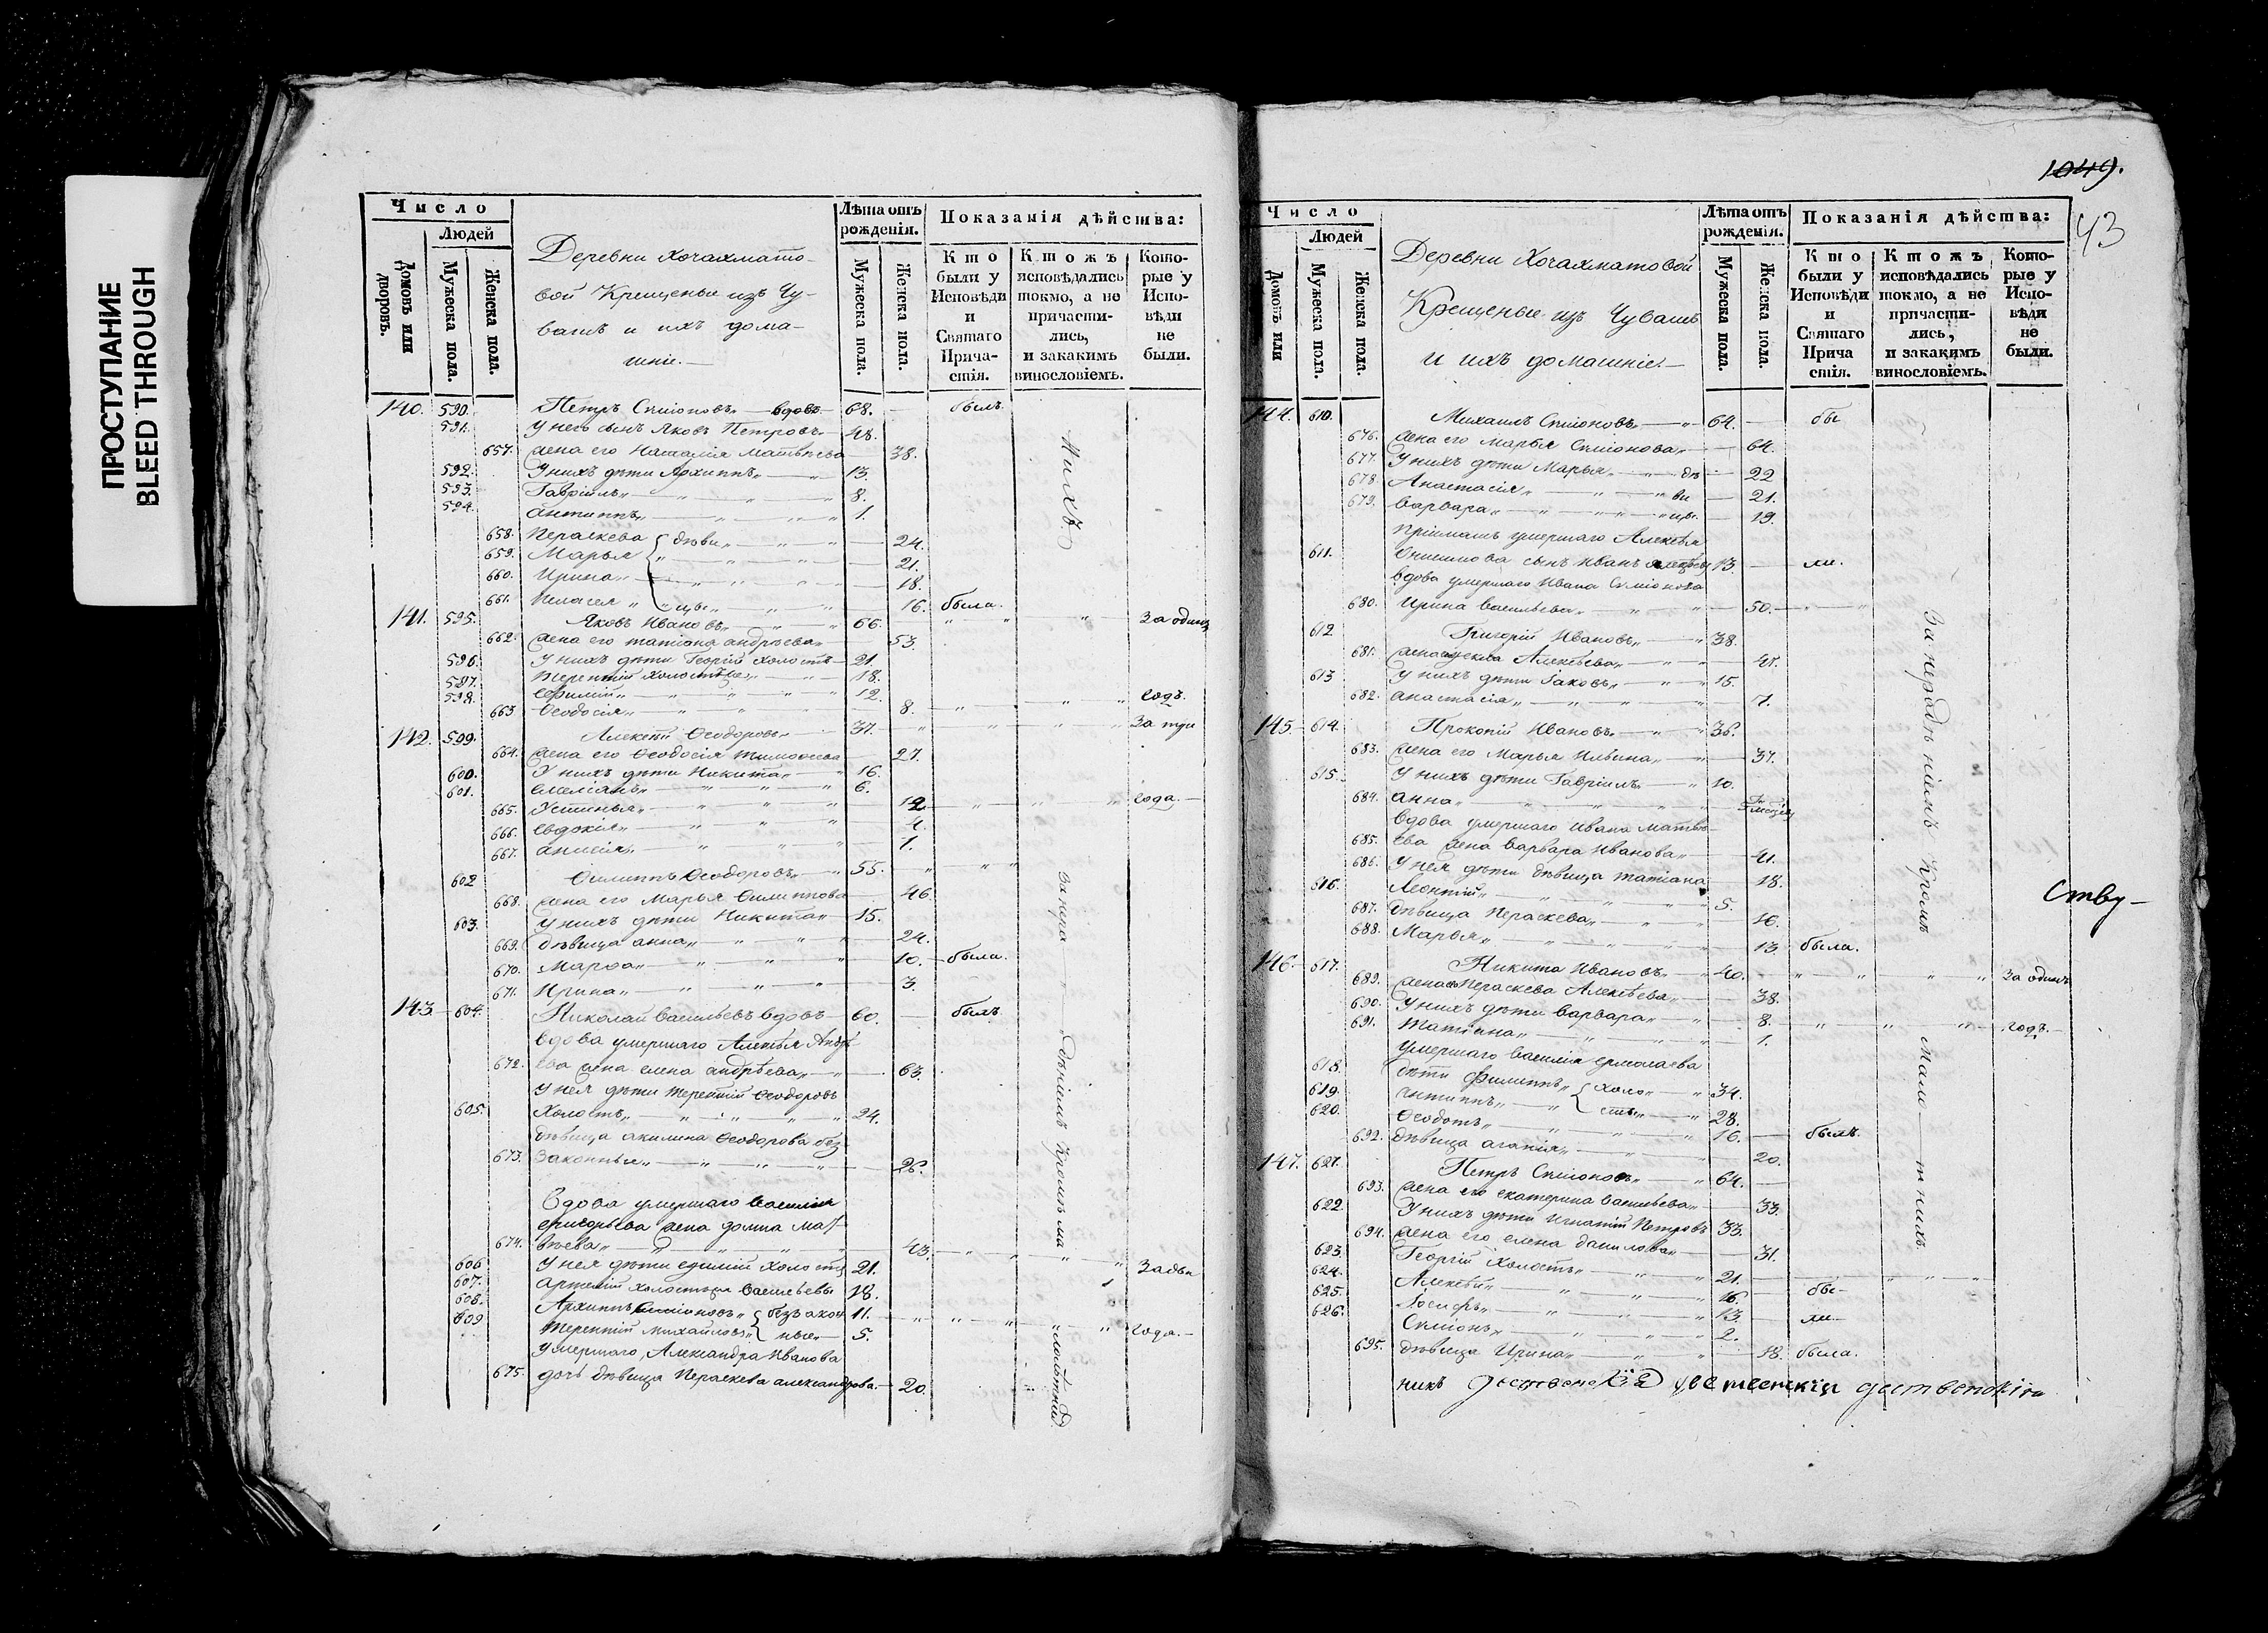 ПРОСТУПАНИЕ
BLEED THROUGH
Число
Людей
Домовъ или дворовъ.
Мужеска пола.
Женска пола.
Деревни Хочахмато-
вой Крещеные изъ Чу-
вашъ и ихъ дома-
шніе.—
Лѣта отъ рожденія.
Мужеска пола.
Женска пола.
Показанія дѣйства:
Кто были у Исповѣди и Святаго Прича-стія.
Ктожъ исповѣдались токмо, а не причасти-лись, и закакимъ винословіемъ.
Кото-рые у Испо-вѣди не были.
140. 590. Петръ Симіоновъ — вдовъ — 68. — былъ.
591. У него сынъ Яковъ Петровъ — 48.
657. жена его Наталія Матвѣева — 38.
592. У нихъ дѣти Архиппъ — 13.
593. Гавріилъ — 8.
594. Антиппъ — 1.
658. Пераскева { дѣви — 24.
659. Марья — 21.
660. Ирина — 18.
661. Пелагея цы — 16. была.
141. 595. Яковъ Ивановъ — 66. За одинъ
662. жена его татіана андрѣева — 53.
596. У нихъ дѣти Георгій холостъ — 21.
597. Терентій холостъ — 18.
598. Ефимій — 12. годъ.
663. Ѳеодосія — 8.
142. 599. Алексѣй Ѳеодоровъ — 37. За три
664. жена его Ѳеодосія тимоѳеева — 27.
600. У нихъ дѣти Никита — 16.
601. Емеліанъ — 6.
665. Устинья — 12. года.—
666. Евдокія — 4.
667. анисія — 1.
602 Филиппъ Ѳеодоровъ — 55.
668. жена его Марья Филиппова — 46.
603. У нихъ дѣти Никита — 15.
669. дѣвица анна — 24.
670. Марѳа — 10. — была.
671. Ирина — 3.
143. 604. Николай васильевъ вдовъ — 60. — былъ
вдова умершаго Алексѣя Андрѣ
672. ева жена елена андрѣева — 63.
У нея дѣти терентій Ѳеодоровъ
605. холостъ — 24.
дѣвица акилина Ѳеодорова без
673. законные — 26.
Вдова умершаго василія
григорьева жена домна мат
674. вѣева — 43. За два
606 У нея дѣти едимій холостъ 21.
607. артемій холостъ васильевы 18.
608. Архиппъ Симіоновъ { безъ закон 11.
609 Терентій Михайловъ ные — 5. года.—
умершаго Александра Иванова
675. дочь дѣвица Пераскева александрова — 20.
Ихъ
за нера — дѣніемъ Кромѣ ма — лолѣтнихъ
1049.
43
Число
Людей
Домовъ или
Мужеска пола.
Женска пола.
Деревни Хочахматовой
Крещеные изъ Чувашъ
и ихъ домашніе.—
Лѣта отъ рожденія.
Мужеска пола.
Женска пола.
Показанія дѣйства:
Кто были у Исповѣди и Святаго Прича стія.
Ктожъ исповѣдались токмо, а не причасти-лись, и закакимъ винословіемъ.
Кото-рые у Испо-вѣди не были.
144. 610. Михаилъ Симіоновъ — 64. — бы
676. жена его марья Симіонова — 64.
677. У нихъ дѣти Марья — дѣ — 22
678 Анастасія — ви — 21.
679. Варвара — цы — 19.
Пріимашъ умершаго Алексѣя
611. Онисимова сынъ Иванъ 13. — ли.
вдова умершаго Ивана Симіонова
680. Ирина васильева — 50.
612 Григорій Ивановъ — 38.
681. жена Алексѣева — 41.
613 У нихъ дѣти Іаковъ — 15.
682. анастасія — 7.
145. 614. Прокопій Ивановъ — 36.
683. жена его Марья Ильина — 37.
615. У нихъ дѣти Гавріилъ — 10.
684. анна
вдова умершаго Ивана Матвѣ-
685. ева жена варвара Иванова — 41.
686. У нея дѣти дѣвица татіана 18.
616. Леонтій — 5.
687. дѣвица Пераскева — 16.
688. Марья — 13 была.
146. 617. Никита Ивановъ — 40. За одинъ
689. жена Пераскева Алексѣева — 38.
690. У нихъ дѣти варвара — 8. годъ.—
691. Татіана — 1.
умершаго василія ермолаева
618. дѣти Филиппъ { холо — 34.
619. антиппъ сты — 28.
620. Ѳеодотъ — 16. — былъ.
692. дѣвица агапія — 20.
147. 621. Петръ Симіоновъ — 64.
693. жена его екатерина васильева — 33.
622. У нихъ дѣти Игнатій Петровъ 33.
694. жена его елена данилова — 31.
623. Георгій холостъ — 21.
624. Алексѣй — 16. бы-
625. Іосифъ — 13. ли—
626. Симіонъ — 2.
695. дѣвица Ирина — 18. была.
За нерадѣніемъ Кромѣ Мало — тнихъ
Ству-
никъ